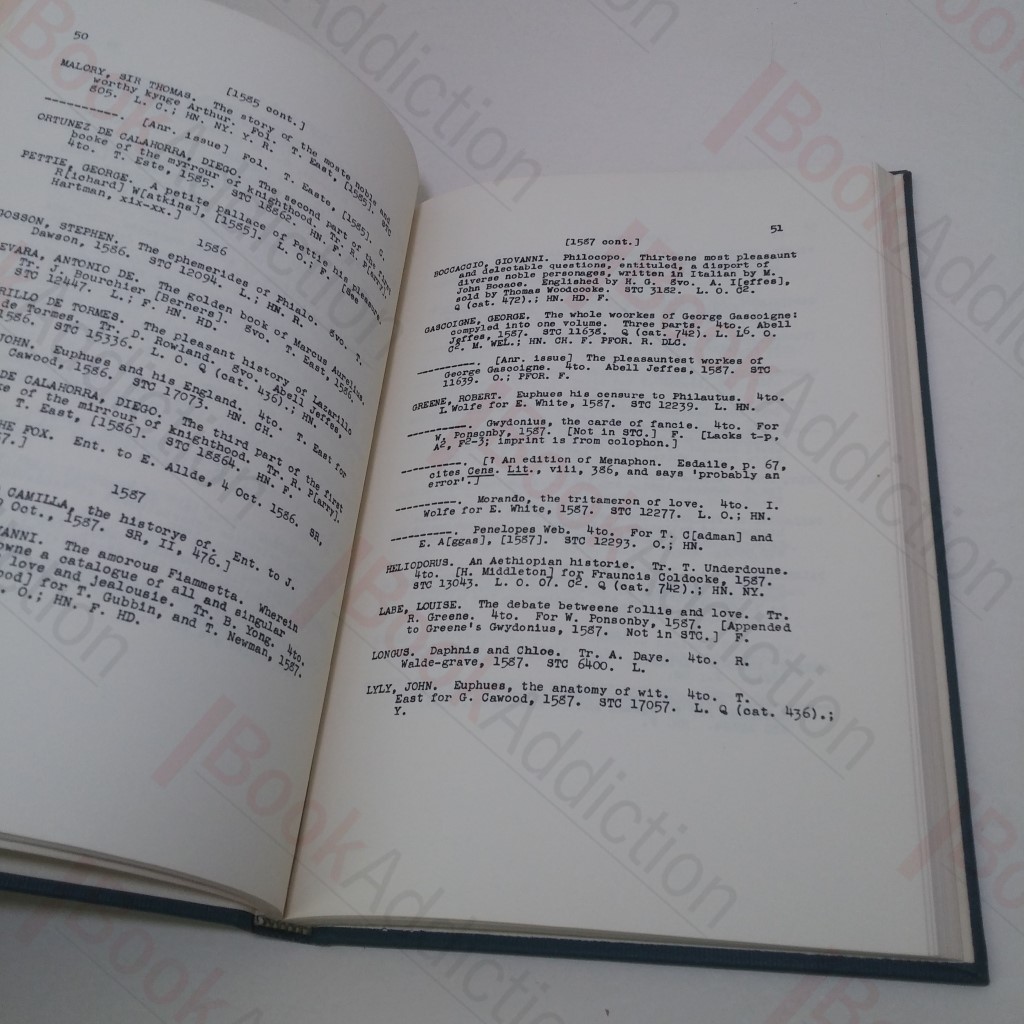 50
[1585 cont.]
MALORY, SIR THOMAS. The story of the moste noble and
worthy kynge Arthur. Fol. T. East, [1585]. STC
805. L. C.; HN. NY. Y. R.
----------. [Anr. issue] Fol. T. Easte, [1585].
ORTUNEZ DE CALAHORRA, DIEGO. The second part of the first
booke of the myrrour of knighthood. Tr. R. P[arry].
4to. T. Este, 1585. STC 18862. HN. F.
PETTIE, GEORGE. A petite pallace of Pettie his pleasure.
R[ichard] W[atkins], [1585]. L. O.; F. [See
Hartman, xix-xx.]
1586
GOSSON, STEPHEN. The ephemerides of Phialo. 8vo. T.
Dawson, 1586. STC 12094. L.; HN. R.
EVARA, ANTONIO DE. The golden book of Marcus Aurelius.
Tr. J. Bourchier [Berners]. 8vo. T. East, 1586.
STC 12447. L.; F. HN. HD.
RILLO DE TORMES. The pleasant history of Lazarillo
de Tormes. Tr. D. Rowland. 8vo. Abell Jeffes,
1586. STC 15336. L. O. Q (cat. 436).; HN.
JOHN. Euphues and his England. 4to. T. East for
Cawood, 1586. STC 17073. HN. CH.
DE CALAHORRA, DIEGO. The third part of the first
ke of the mirrour of knighthood. Tr. R. P[arry].
T. East, [1586]. STC 18864. HN. F.
THE FOX. Ent. to E. Allde, 4 Oct. 1586. SR,
7.]
1587
CAMILLA, the historye of. Ent. to J.
9 Oct., 1587. SR, II, 476.]
VANNI. The amorous Fiammetta. Wherein
owne a catalogue of all and singular
love and jealousie. Tr. B. Yong. 4to.
ood] for T. Gubbin, and T. Newman, 1587.
O.; HN. F. HD.
51
[1587 cont.]
BOCCACCIO, GIOVANNI. Philocopo. Thirteene most pleasaunt
and delectable questions, entituled, a disport of
diverse noble personages, written in Italian by M.
John Bocace. Englished by H. G. 8vo. A. I[effes],
sold by Thomas Woodcocke. STC 3182. L. O. C2.
Q (cat. 472).; HN. HD. F.
GASCOIGNE, GEORGE. The whole woorkes of George Gascoigne:
compyled into one volume. Three parts. 4to. Abell
Jeffes, 1587. STC 11638. Q (cat. 742). L. L6. O.
C2. M. WEL.; HN. CH. F. PFOR. R. DLC.
----------. [Anr. issue] The pleasauntest workes of
George Gascoigne. 4to. Abell Jeffes, 1587. STC
11639. O.; PFOR. F.
GREENE, ROBERT. Euphues his censure to Philautus. 4to.
I. Wolfe for E. White, 1587. STC 12239. L. HN.
----------. Gwydonius, the carde of fancie. 4to. For
W. Ponsonby, 1587. [Not in STC.] F. [Lacks t-p,
A2, F2-3; imprint is from colophon.]
----------. [? An edition of Menaphon. Esdaile, p. 67,
cites Cens. Lit., viii, 386, and says 'probably an
error'.]
----------. Morando, the tritameron of love. 4to. I.
Wolfe for E. White, 1587. STC 12277. L. O.; HN.
----------. Penelopes Web. 4to. For T. C[adman] and
E. A[ggas], [1587]. STC 12293. O.; HN.
HELIODORUS. An Aethiopian historie. Tr. T. Underdoune.
4to. [H. Middleton] for Frauncis Coldocke, 1587.
STC 13043. L. O. O7. C2. Q (cat. 742).; HN. NY.
LABE, LOUISE. The debate betweene follie and love. Tr.
R. Greene. 4to. For W. Ponsonby, 1587. [Appended
to Greene's Gwydonius, 1587. Not in STC.] F.
LONGUS. Daphnis and Chloe. Tr. A. Daye. 4to. R.
Walde-grave, 1587. STC 6400. L.
LYLY, JOHN. Euphues, the anatomy of wit. 4to. T.
East for G. Cawood, 1587. STC 17057. L. Q (cat. 436).;
Y.
BookAddiction